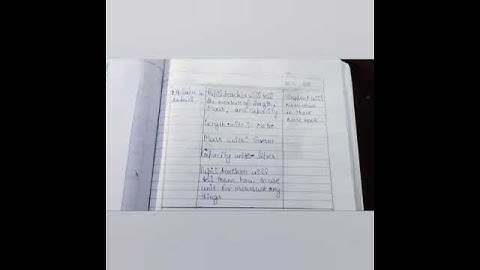 Explain in detail
Pupil teacher will tell
the measure of Length,
Mass, and capacity
Length unit :- Metre
Mass unit :- Gram
Capacity unit :- Litre
Pupil teacher will
tell them how to use
unit for measure any
things
Student will
note down
in their
note book